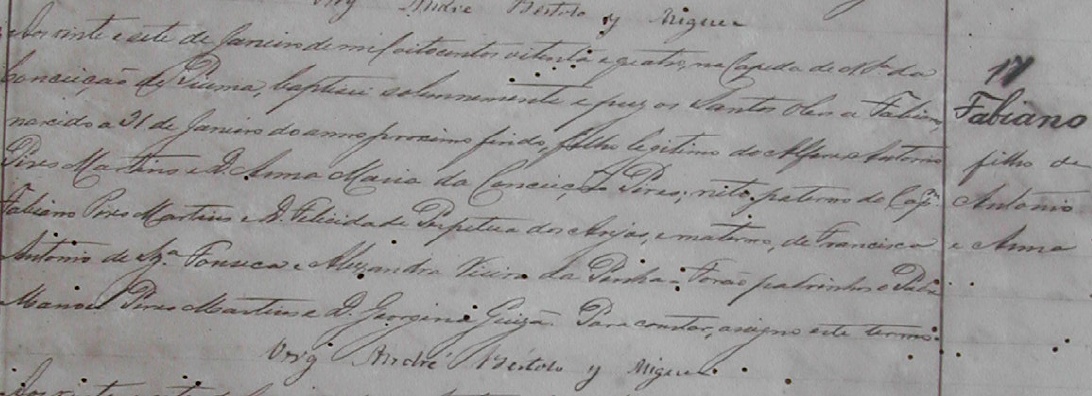 Vrg André Bertolo y Miguez
Aos vinte e sete de Janeiro de mil oitocentos oitenta e quatro, na Capela de N. Sra. da
Conceição de Piuma, baptisei solemnemente e puz os Santos Oleos a Fabiano,
nascido a 21 de Janeiro do anno proximo findo, filho legitimo do Alferes Antonio
Pires Martins e D. Anna Maria da Conceição Pires, neto paterno do Capm.
Fabiano Pires Martins e D. Felicidade Perpetua dos Anjos, e materno, de Francisco
Antonio de Sza. Fonseca e Alexandra Vieira da Penha. Forão padrinhos o
Manoel Pires Martins e D. Georgina. Para constar, assigno este termo.
Vrg André Bertolo y Miguez
17
Fabiano
filho de
Antonio
e Anna